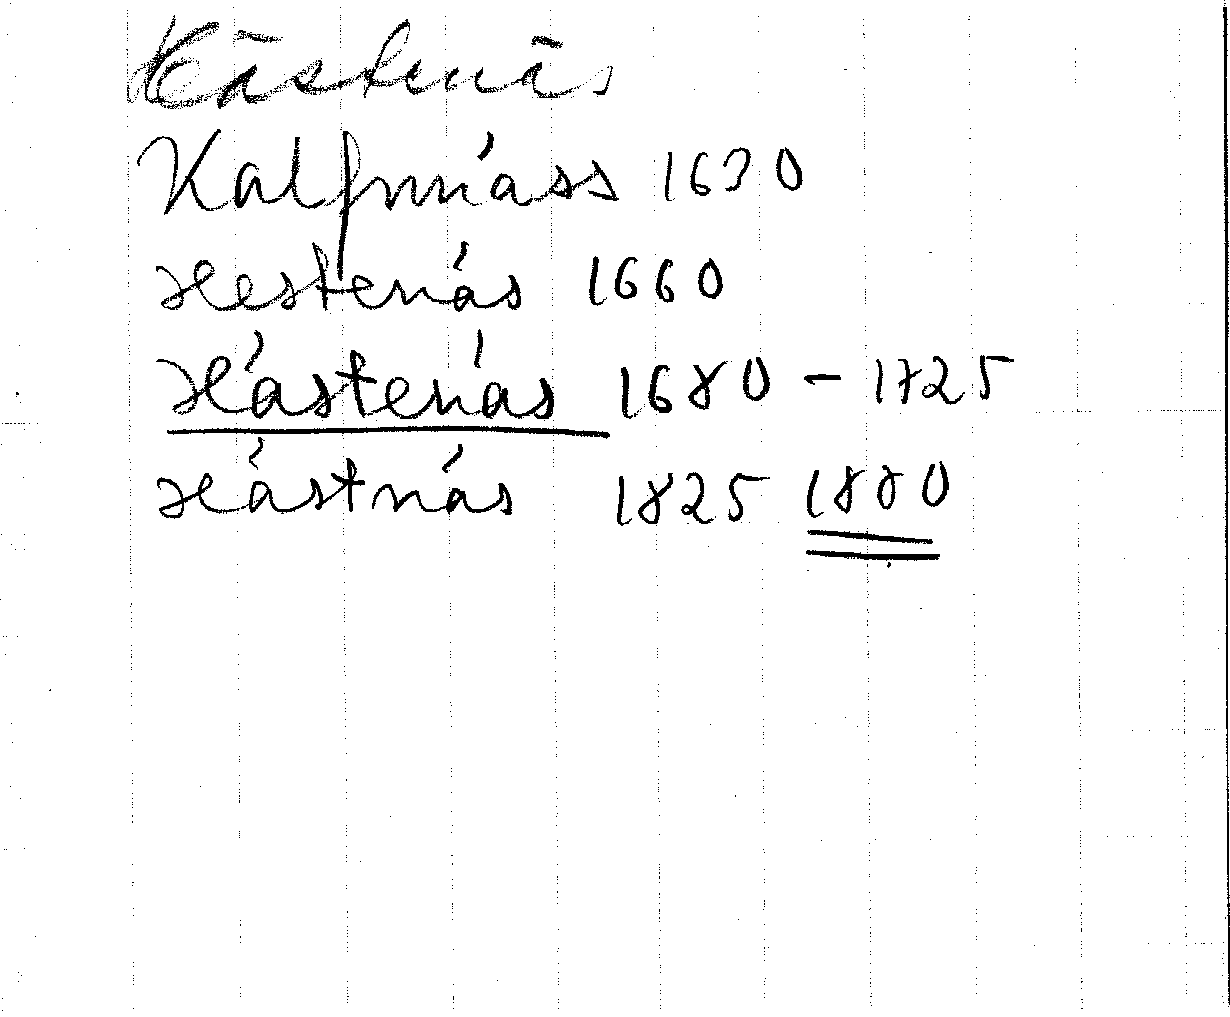 Hästenäs
Kalfnäss 1630
Hestenäs 1660
Hästenäs 1680 - 1725
Hästnäs 1825 1880